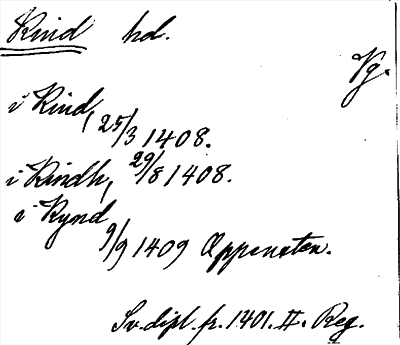 Kind hd.
Vg.
i Kind, 25/3 1408.
i Kindh, 29/8 1408.
i Kynd
9/9 1409 Öppensten.
Sv. dipl. fr. 1401. II. Reg.